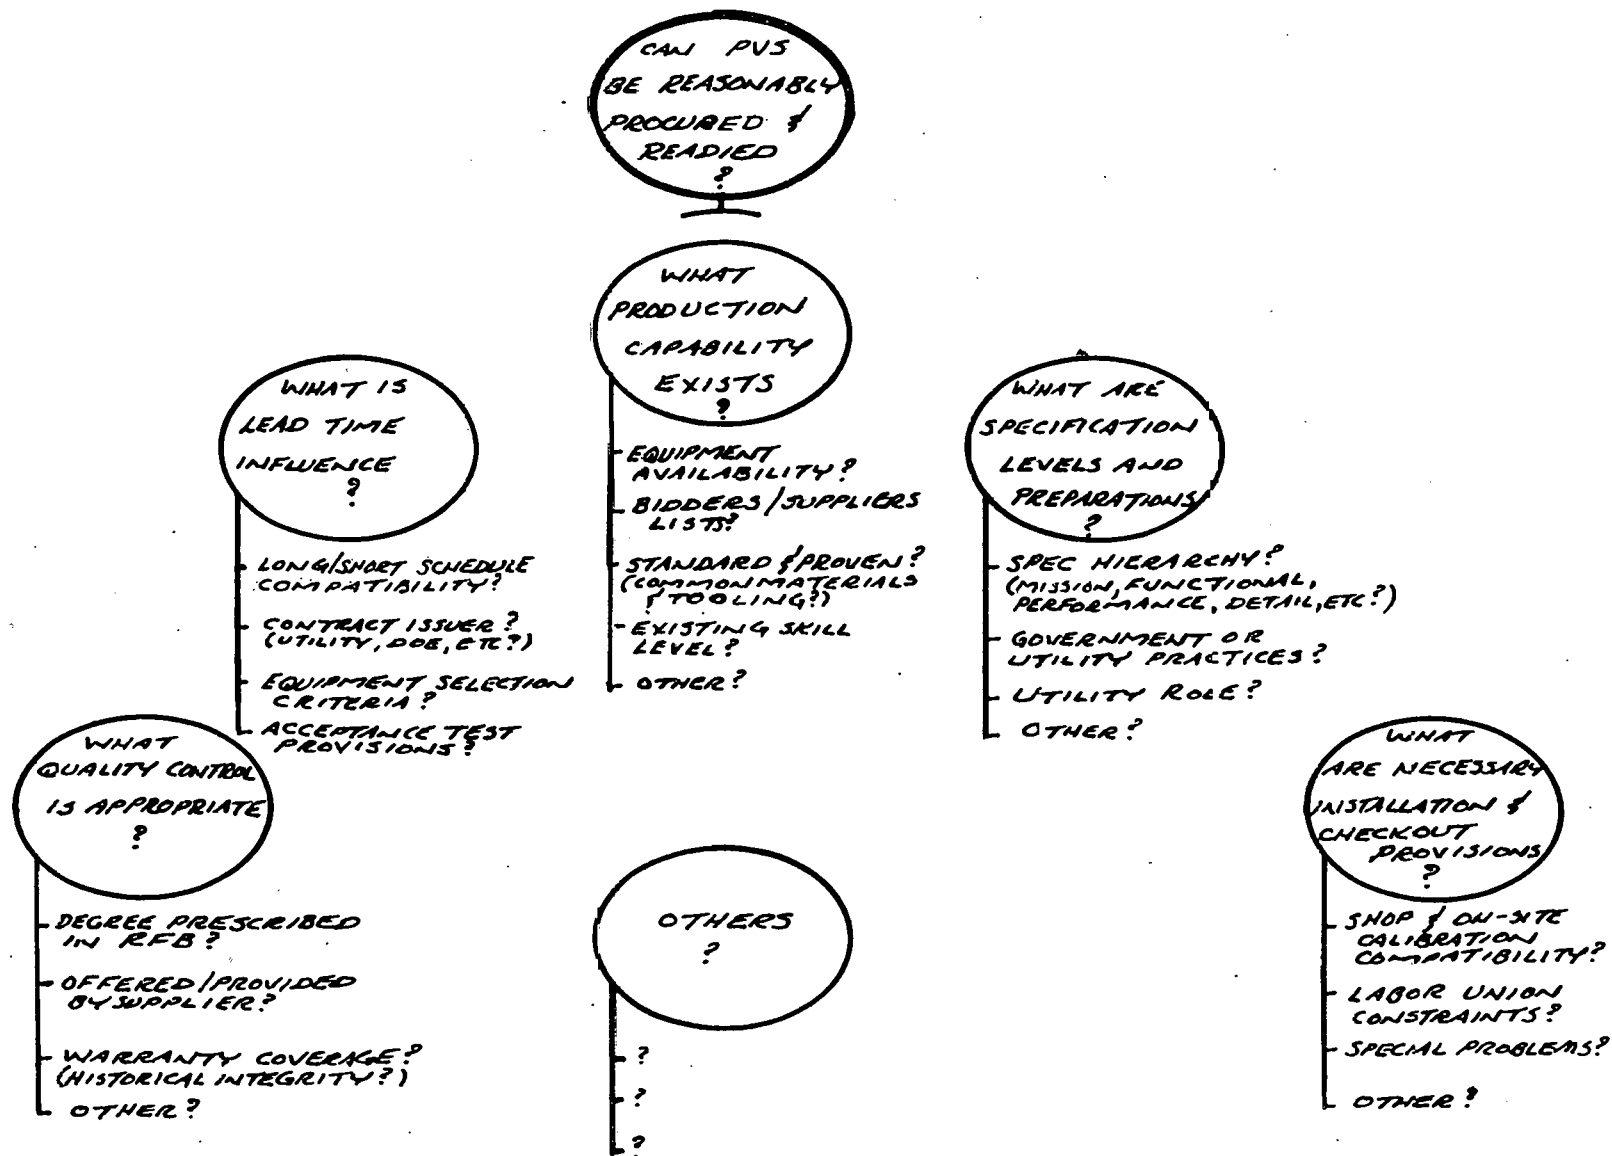 CAN PVS
BE REASONABLY
PROCURED &
READIED
?
WHAT
PRODUCTION
CAPABILITY
EXISTS
?
EQUIPMENT
AVAILABILITY?
BIDDERS/SUPPLIERS
LISTS?
STANDARD & PROVEN?
(COMMON MATERIALS
& TOOLING?)
EXISTING SKILL
LEVEL?
OTHER?
WHAT IS
LEAD TIME
INFLUENCE
?
LONG/SHORT SCHEDULE
COMPATIBILITY?
CONTRACT ISSUER?
(UTILITY, DOE, ETC?)
EQUIPMENT SELECTION
CRITERIA?
ACCEPTANCE TEST
PROVISIONS?
WHAT ARE
SPECIFICATION
LEVELS AND
PREPARATIONS
?
SPEC HIERARCHY?
(MISSION, FUNCTIONAL,
PERFORMANCE, DETAIL, ETC?)
GOVERNMENT OR
UTILITY PRACTICES?
UTILITY ROLE?
OTHER?
WHAT
QUALITY CONTROL
IS APPROPRIATE
?
DEGREE PRESCRIBED
IN RFB?
OFFERED/PROVIDED
BY SUPPLIER?
WARRANTY COVERAGE?
(HISTORICAL INTEGRITY?)
OTHER?
OTHERS
?
?
?
?
WHAT
ARE NECESSARY
INSTALLATION &
CHECKOUT
PROVISIONS
?
SHOP & ON-SITE
CALIBRATION
COMPATIBILITY?
LABOR UNION
CONSTRAINTS?
SPECIAL PROBLEMS?
OTHER?